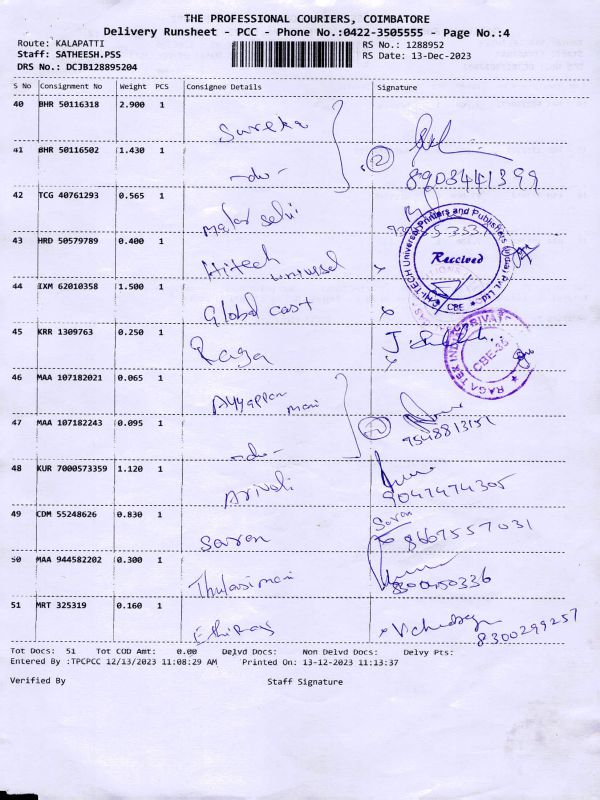 THE PROFESSIONAL COURIERS, COIMBATORE
Delivery Runsheet - PCC - Phone No.:0422-3505555 - Page No.:4
Route: KALAPATTI RS No.: 1288952
Staff: SATHEESH.PSS RS Date: 13-Dec-2023
DRS No.: DCJB128895204
S No Consignment No Weight PCS Consignee Details Signature
40 BHR 50116318 2.900 1 Sureka
41 BHR 50116502 1.430 1 -do- 2 8903441399
42 TCG 40761293 0.565 1 Malar selvi
43 HRD 50579789 0.400 1 Hitech universal
HI-TECH Universal Printers and Publishers (India) Pvt. Ltd.
Received
CBE
44 IXM 62010358 1.500 1 Global cast
45 KRR 1309763 0.250 1 Raga
CBE-35
46 MAA 107182021 0.065 1 Ayyappan mani
47 MAA 107182243 0.095 1 -do- 2 9548813151
48 KUR 7000573359 1.120 1 Arivali 9047474305
49 CDM 55248626 0.830 1 Saran Saran 8667557031
50 MAA 944582202 0.300 1 Thulasimani
51 MRT 325319 0.160 1 Ethiraj 8300299257
Tot Docs: 51 Tot COD Amt: 0.00 Delvd Docs: Non Delvd Docs: Delvy Pts:
Entered By :TPCPCC 12/13/2023 11:08:29 AM Printed On: 13-12-2023 11:13:37
Verified By Staff Signature